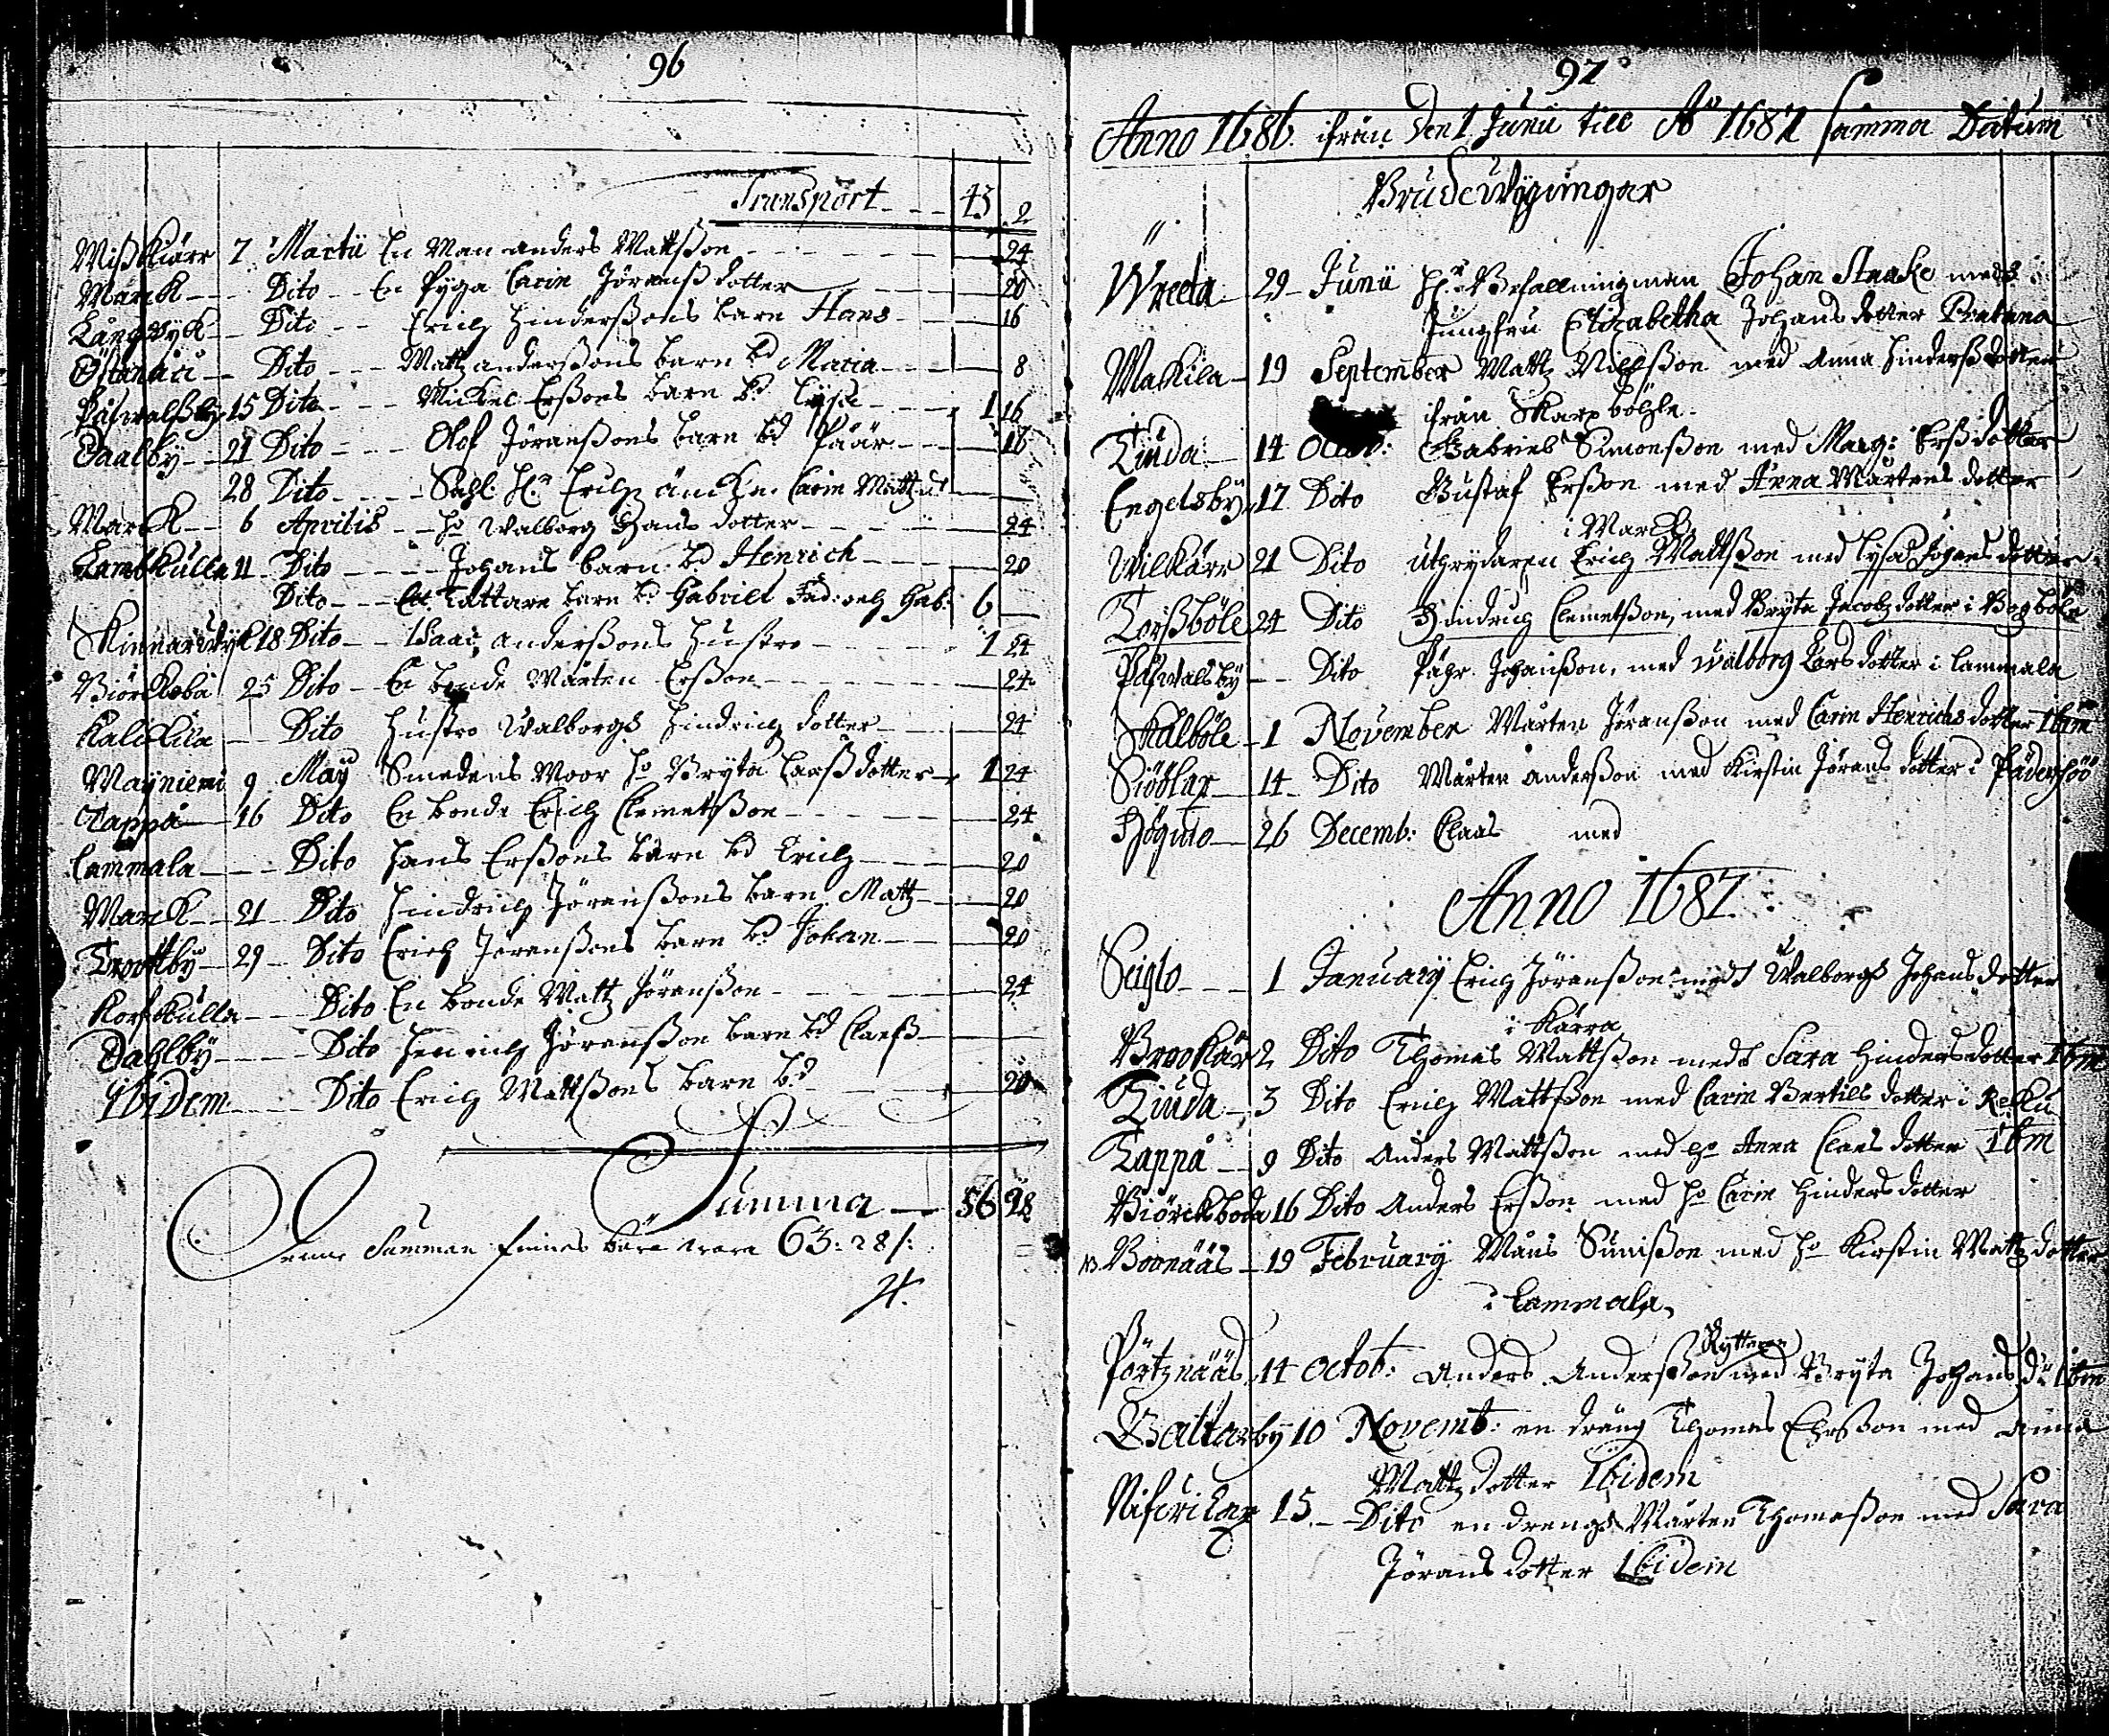 96
Transport 43 2
Mißkiärr 7 Martii En Man anders Mattßon 24
Marck Dito En Pyga Carin Jöranß dotter 20
Långwyk Dito Erich Hinderßons barn Hans 16
Östanå Dito Matz anderßons barn bd Maria 8
Påswalßby 15 Dito Mickel Erßons barn bd Lyse 1 16
Daalby 21 Dito Olof Jöranßons barn bd Påår 16
28 Dito Sahl. Hr Erichz änckia Carin Mattz dr
Marck 6 Aprilis ho Walborg Hans dotter 24
Lambkulla 11 Dito Johans barn bd Henrich 20
Dito Ett Tattare barn bd Gabriel 6
Kinnarwyk 18 Dito Isaac anderßons hustro 1 24
Biörkboda 25 Dito En bonde Mårten Erßon 24
Kalckila Dito Hustro Walborgh Hindrich dotter 24
Mayniemi 9 May Smedens Moor ho Bryta Larß dotter 1 24
Tappå 16 Dito En bonde Erich Clemetßon 24
Lammala Dito Hans Erßons barn bd Erich 20
Marck 21 Dito Hindrich Jöranßons barn Matz 20
Trootby 29 Dito Erich Jöranßons barn bd Johan 20
Korskulla Dito En bonde Matz Jöranßon 24
Dahlby Dito Henrich Jöranßon barn bd Claeß
Ibidem Dito Erich Mattßons barn bd 20
Summa 56 28
Denne Summan finnes böra wara 63: 28/:
97
Anno 1686 ifrån den 1 Junii till Ao 1687 samma Datum
Brudewygningar
Wreeta 29 Junii Hr Befallningman Johan Knake medh
Jungfru Elizabetha Johans dotter
Makila 19 September Mattz Nilsßon med Anna Hinderß dotter
ifrån Skarpbölle
Tiuda 14 Octob: Gabriel Simonßon med Marg: Erß dotter
Engelsby 17 Dito Gustaf Erßon med Anna Mårtens dotter
i Marck
Wilkärr 21 Dito Uthrydaren Erich Mattßon med Lysa Johans dotter
Torßböle 24 Dito Hindrich Clemetßon, med Bryta Jacobz dotter i Bogböle
Påswalsby Dito Påhr Johanßon, med Walborg Lars dotter i Lammala
Skålböle 1 November Mårten Jöranßon med Carin Henrichs dotter Ibm
Siölax 14 Dito Mårten Anderßon med Kirstin Jörans dotter i Pådersöö
Högmo 26 Decemb: Claas med
Anno 1687
Seiglo 1 January Erich Jöranßon medh Walborgh Johans dotter
i Kärra
Brookär 2 Dito Thomas Mattßon medh Sara Hinders dotter Ibm
Tiuda 3 Dito Erich Mattßon med Carin Bertils dotter i Reku
Tappå 9 Dito Anders Mattßon med ho Anna Claes dotter Ibm
Biörckboda 16 Dito Anders Erßon med ho Carin Hinders dotter
Boonääs 19 February Måns Sunißon med ho Kirstin Mattz dotter
i Lammala
Pörtznääs 14 Octob: Anders Anderßon Ryttaren med Bryta Johans dr ibm
Galtarby 10 Novemb: en dräng Thomas Ehrßon med Anna
Mattz dotter Ibidem
15 Dito en drengh Mårten Thomaßon med Sara
Jörans dotter Ibidem